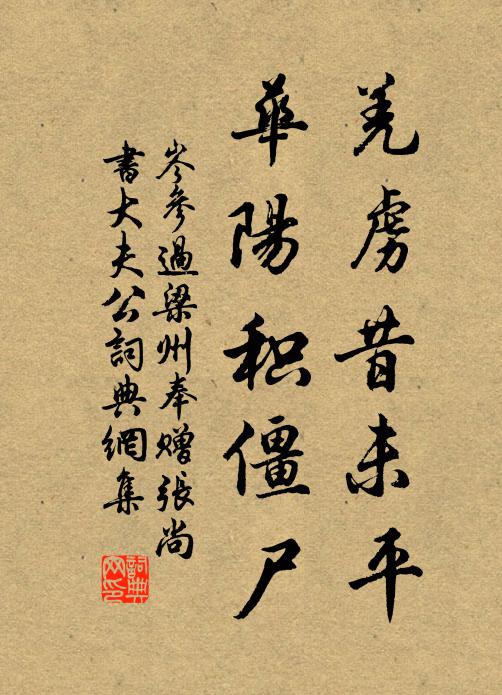 羌虜昔未平
華陽积僵尸
岑參過梁州奉贈張尚
書大夫公詞典網集
詞典
网印